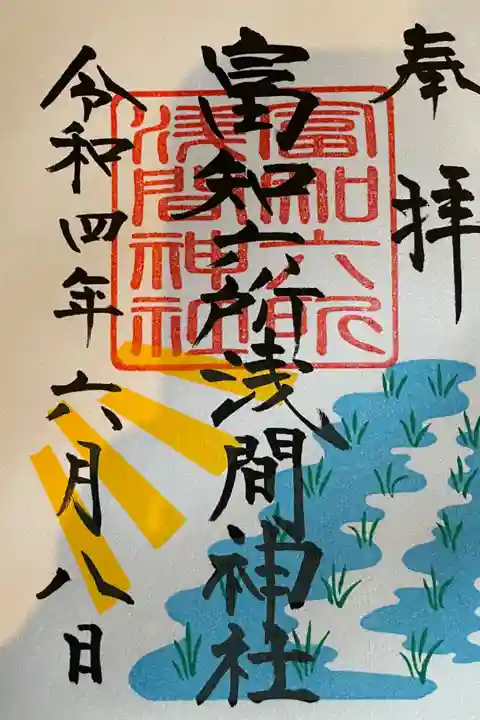 奉拝
富知六所浅間神社
富知六所
浅間神社
令和四年六月八日